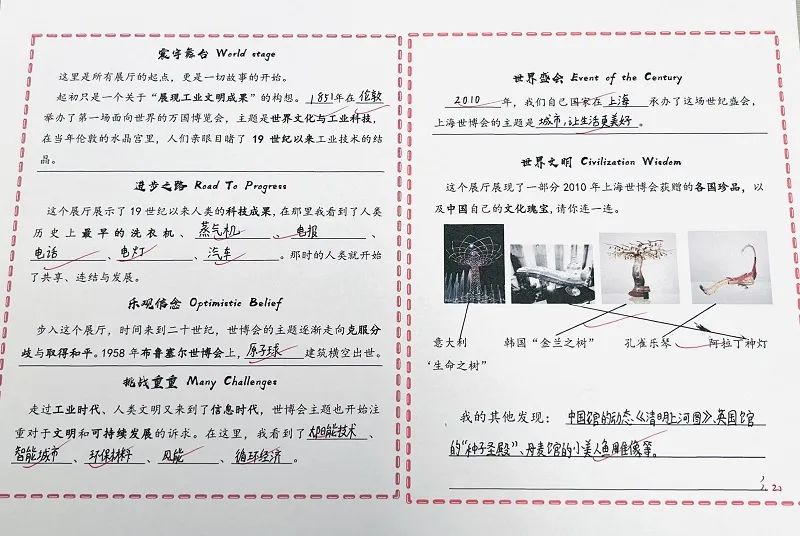 寰宇舞台 World stage
这里是所有展厅的起点，更是一切故事的开始。
起初只是一个关于“展现工业文明成果”的构想。1851年在 伦敦
举办了第一场面向世界的万国博览会，主题是世界文化与工业科技，
在当年伦敦的水晶宫里，人们亲眼目睹了 19 世纪以来工业技术的结
晶。
进步之路 Road To Progress
这个展厅展示了 19 世纪以来人类的科技成果，在那里我看到了人类
历史上最早的洗衣机、蒸气机、电报、
电话、电灯、汽车。那时的人类就开始
了共享、连结与发展。
乐观信念 Optimistic Belief
步入这个展厅，时间来到二十世纪，世博会的主题逐渐走向克服分
歧与取得和平。1958 年布鲁塞尔世博会上，原子球 建筑横空出世。
挑战重重 Many Challenges
走过工业时代、人类文明又来到了信息时代，世博会主题也开始注
重对于文明和可持续发展的诉求。在这里，我看到了太阳能技术、
智能城市、环保材料、风能、循环经济。
世界盛会 Event of the Century
2010 年，我们自己国家在 上海 承办了这场世纪盛会，
上海世博会的主题是 城市，让生活更美好。
世界文明 Civilization Wisdom
这个展厅展现了一部分 2010 年上海世博会获赠的各国珍品，以
及中国自己的文化瑰宝，请你连一连。
意大利 韩国“金兰之树” 孔雀乐琴、 阿拉丁神灯
‘生命之树”
我的其他发现：中国馆的动态《清明上河图》、英国馆
的“种子圣殿”、丹麦馆的小美人鱼铜像等。